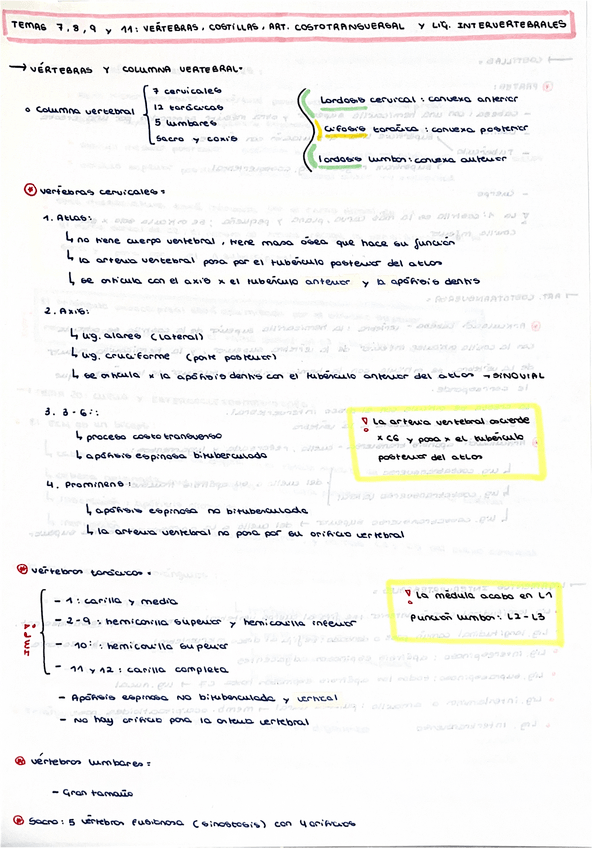 TEMAS 7, 8, 9 y 11: VÉRTEBRAS, COSTILLAS, ART. COSTOTRANSVERSAL y LIG. INTERVERTEBRALES
→ VÉRTEBRAS Y COLUMNA VERTEBRAL:
o Columna vertebral
7 cervicales
12 torácicas
5 lumbares
Sacro y coxis
Lordosis cervical: convexa anterior
Cifosis torácica: convexa posterior
Lordosis lumbar: convexa anterior
Vértebras cervicales:
1. Atlas:
↳ no tiene cuerpo vertebral, tiene masa ósea que hace su función
↳ la arteria vertebral pasa por el tubérculo posterior del atlas
↳ se articula con el axis x el tubérculo anterior y la apófisis dentis
2. Axis:
↳ lig. alares (lateral)
↳ lig. cruciforme (parte posterior)
↳ se articula x la apófisis dentis con el tubérculo anterior del atlas → SINOVIAL
3. 3-6ª:
↳ proceso costotransverso
↳ apófisis espinosa bituberculada
! La arteria vertebral asciende
x C6 y pasa x el tubérculo
posterior del atlas
4. Prominens:
↳ apófisis espinosa no bituberculada
↳ la arteria vertebral no pasa por su orificio vertebral
Vértebras torácicas:
- 1: carilla y media
- 2-9: hemicarilla superior y hemicarilla inferior
- 10: hemicarilla superior
- 11 y 12: carilla completa
- Apófisis espinosa NO bituberculada y vertical
- No hay orificio para la arteria vertebral
! La médula acaba en L1
Punción lumbar: L2-L3
Vértebras lumbares:
- Gran tamaño
Sacro: 5 vértebras fusionosa (sinostosis) con 4 orificios